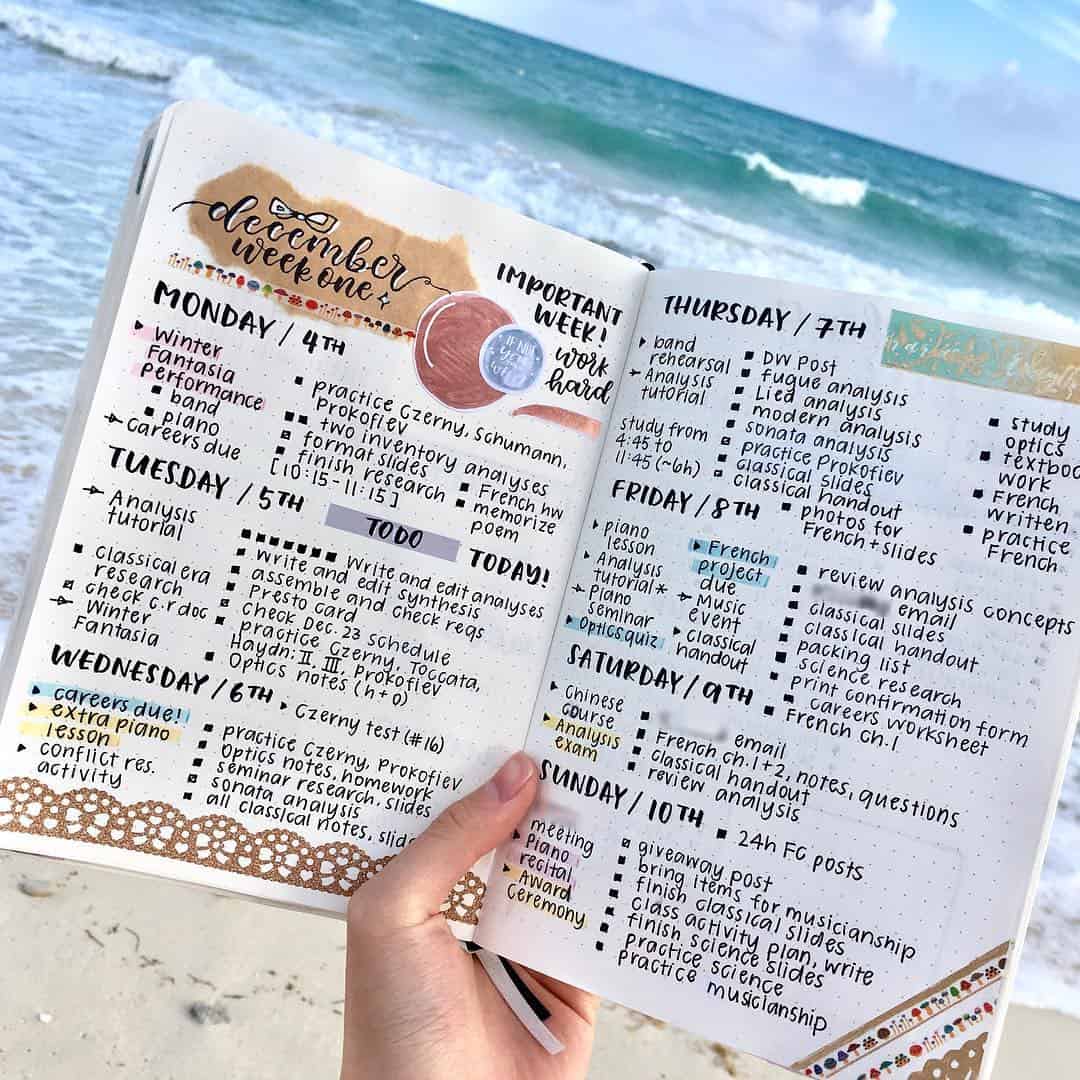 december
week one
IMPORTANT
WEEK!
work
hard
IF NOT
YOU
MONDAY / 4TH
Winter
Fantasia
performance
band
piano
careers due
practice Czerny, Schumann,
Prokofiev
two inventory analyses
format slides
finish research
[10:15-11:15]
French hw
memorize
poem
TUESDAY / 5TH
TO DO
TODAY!
Analysis
tutorial
classical era
research
check c.r doc
Winter
Fantasia
Write and edit analyses
Write and edit synthesis
assemble and check reqs
Presto card
check Dec. 23 schedule
practice Czerny, Toccata,
Haydn: II, III, Prokofiev
Optics notes (h+o)
WEDNESDAY / 6TH
Czerny test (#16)
careers due!
extra piano
lesson
conflict res.
activity
practice Czerny, Prokofiev
Optics notes, homework
seminar research, slides
sonata analysis
all classical notes, slide
THURSDAY / 7TH
band
rehearsal
Analysis
tutorial
study from
4:45 to
11:45 (~6h)
DW post
fugue analysis
Lied analysis
modern analysis
sonata analysis
practice Prokofiev
classical slides
classical handout
photos for
French + slides
study
optics
textboo
work
French
written
practice
French
FRIDAY / 8TH
piano
lesson
Analysis
tutorial*
Piano
seminar
Optics quiz
French
project
due
Music
event
classical
handout
review analysis concepts
email
classical slides
classical handout
packing list
science research
print confirmation form
careers worksheet
French ch.1
SATURDAY / 9TH
Chinese
course
Analysis
exam
email
French ch.1+2, notes, questions
classical handout
review analysis
SUNDAY / 10TH
24h FC posts
meeting
Piano
recital
Award
Ceremony
giveaway post
bring items for musicianship
finish classical slides
class activity plan, write
finish science slides
practice science
practice musicianship